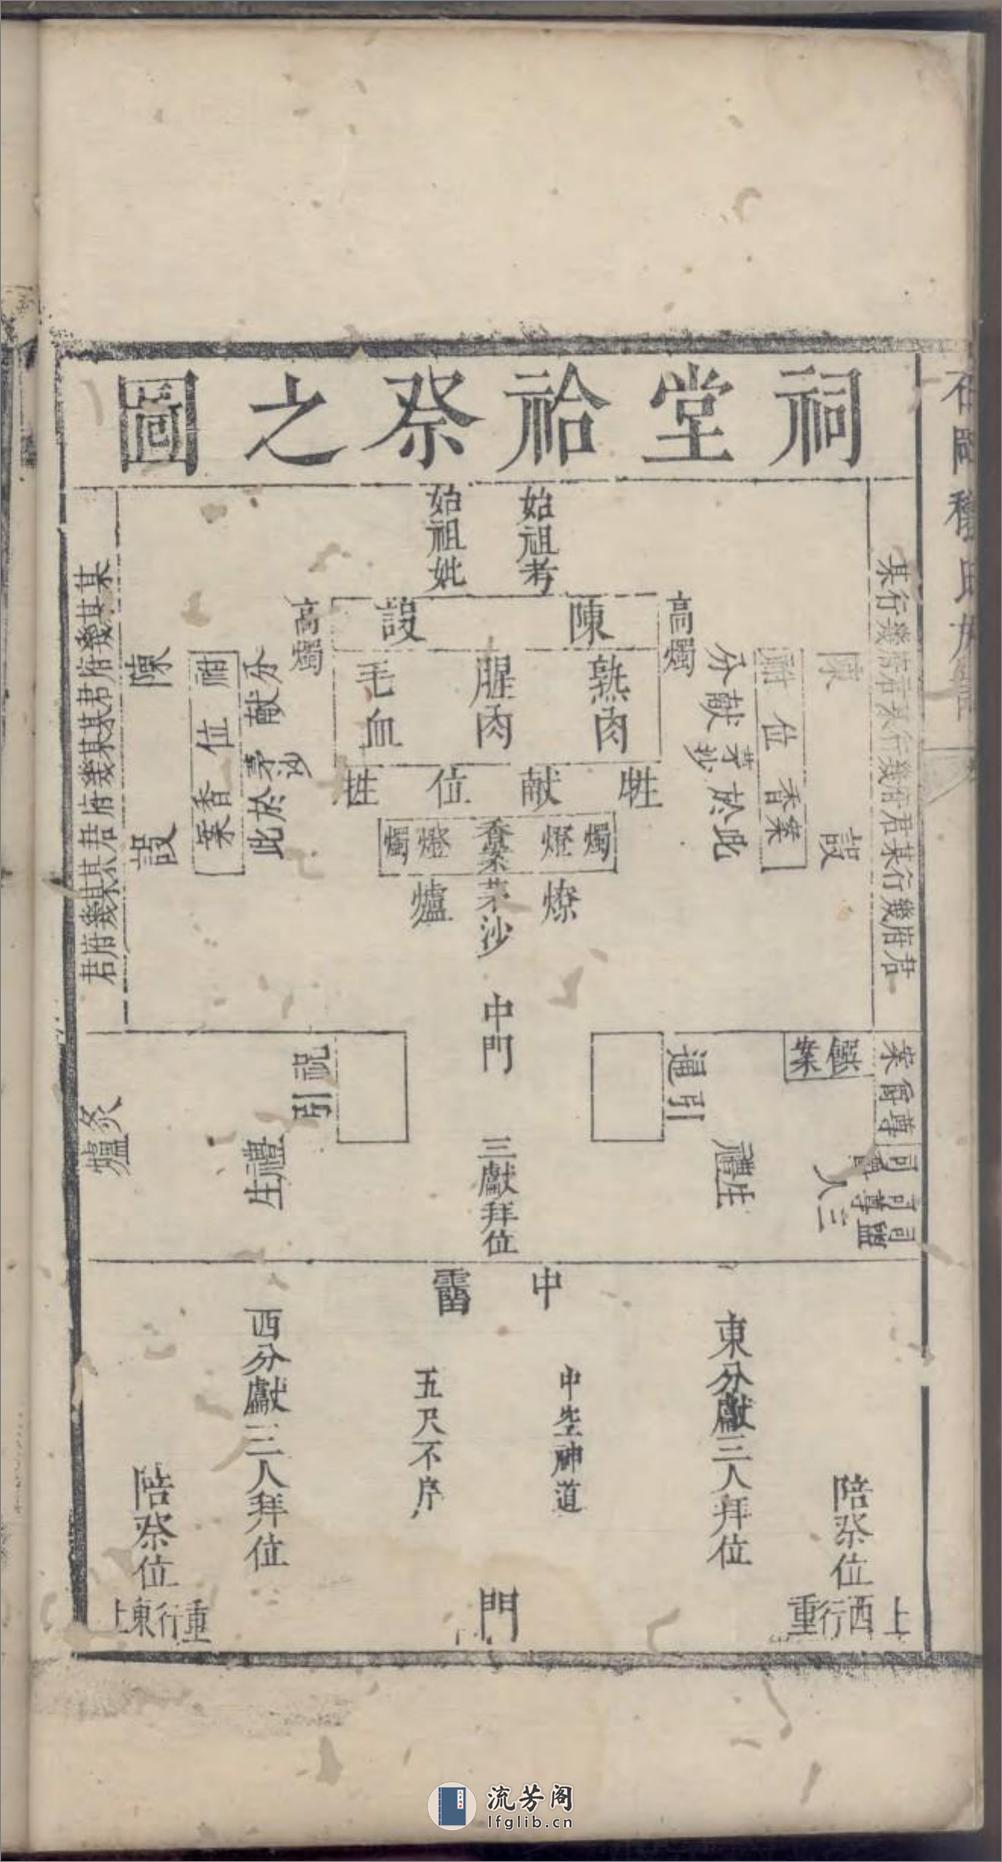 祠堂祫祭之圖
始祖考
始祖妣
陳設
高燭
高燭
熟肉
腥肉
毛血
牲獻位牲
燭燈香案燈燭
茅沙
燎爐
某行幾府君某行幾府君某行幾府君
陳設
祔位
香案
分獻茅沙於此
某某幾府君某某幾府君某某幾府君
陳設
祔位
香案
分獻茅沙於此
中門
三獻拜位
通引
禮生
饌案
爵尊
三人
祝引
禮生
炙爐
中霤
東分獻三人拜位
中空神道
五尺不序
西分獻三人拜位
陪祭位
重行西上
陪祭位
重行東上
門
流芳阁
lfglib.cn